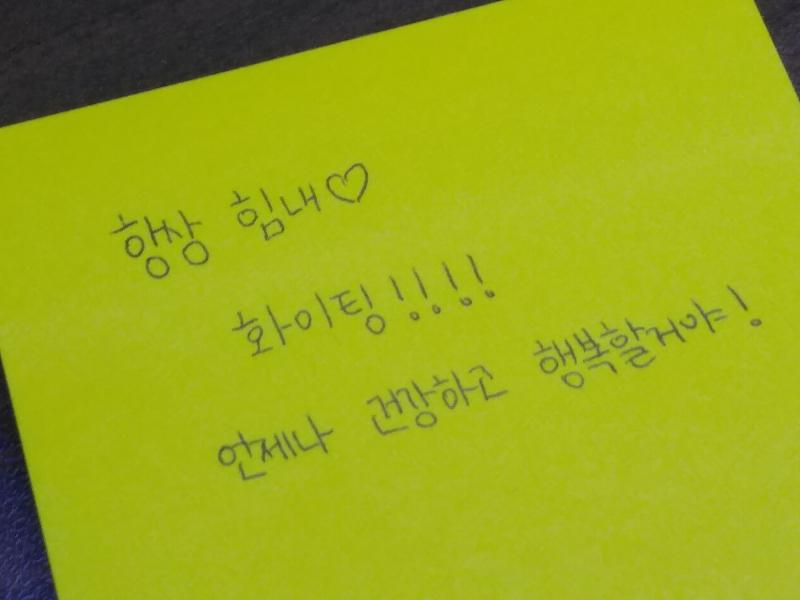 항상 힘내♡
화이팅!!!!
언제나 건강하고 행복할거야!